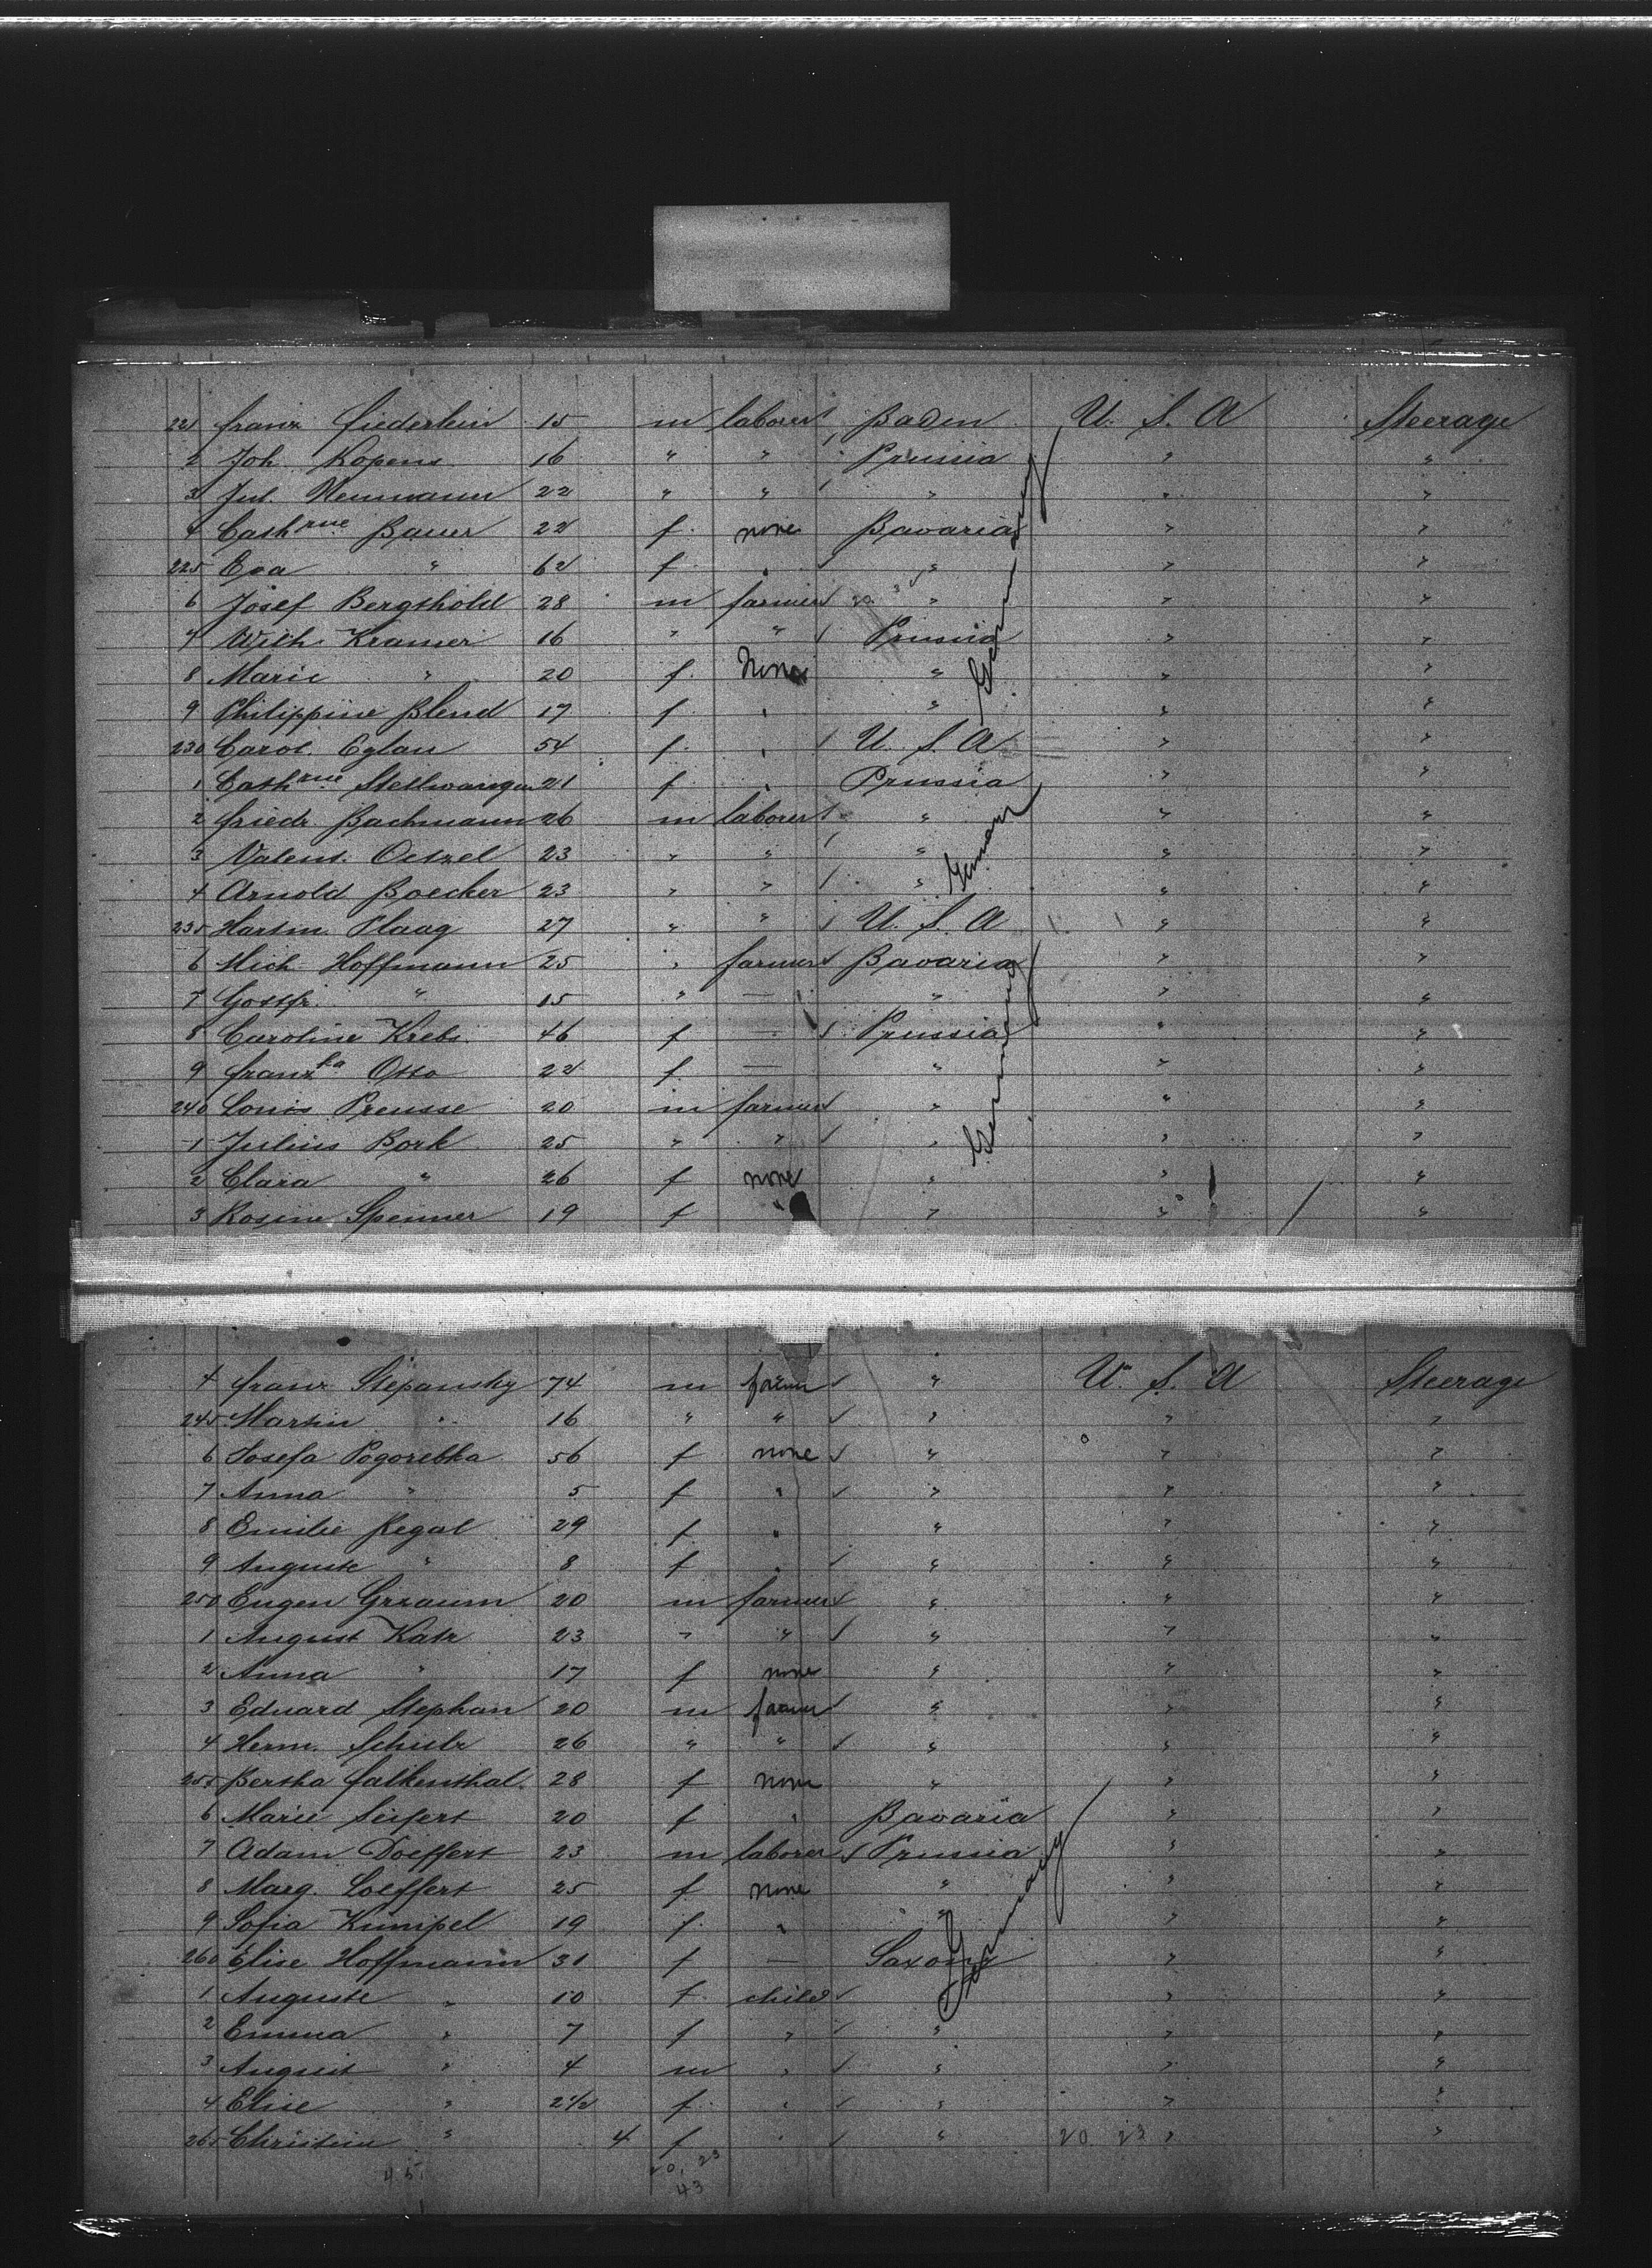 221 Franz Fiederlein 15 m laborer Baden U. S. A Steerage
2 Joh. Kopens 16 " " Prussia " "
3 Jul. Neumann 22 " " " " "
4 Cathrne Bauer 22 f. none Bavaria " "
225 Eva " 62 f " " " "
6 Josef Bergthold 28 m farmer " " "
7 Wilh. Kramer 16 " " Prussia " "
8 Marie " 20 f. None " " "
9 Philippine Blend 17 f " " " "
230 Carol. Eglau 54 f. " U. S. A " "
1 Cathrne Stellwangen 21 f " Prussia " "
2 Friedr. Bachmann 26 m laborer " " "
3 Valent. Oetzel 23 " " " " "
4 Arnold Boecker 23 " " " " "
235 Haag 27 " " U. S. A " "
6 Mich. Hoffmann 25 " farmer Bavaria " "
7 Gottfr. " 15 " — " " "
8 Caroline Krebs 46 f — Prussia " "
9 Franzka Otto 22 f — " " "
240 Louis Preusse 20 m farmer " " "
1 Julius Bork 25 " " " " "
2 Clara " 26 f none " " "
3 Rosine Spenner 19 f " " " "
Germany
German
Germany
4 Franz Stepansky 74 m farmer " U. S. A Steerage
245 Martin " 16 " " " " "
6 Josefa Pogorebka 56 f none " " "
7 Anna " 5 f " " " "
8 Emilie Regal 29 f " " " "
9 Auguste " 8 f " " " "
250 Eugen Graaum 20 m farmer " " "
1 August Katz 23 " " " " "
2 Anna " 17 f none " " "
3 Eduard Stephan 20 m farmer " " "
4 Herm. Schulz 26 " " " " "
255 Bertha Falkenthal 28 f none " " "
6 Marie Seifert 20 f " Bavaria " "
7 Adam Doeffert 23 m laborer Prussia " "
8 Marg. Loeffert 25 f none " " "
9 Sofia Kümpel 19 f. " " " "
260 Elise Hoffmann 31 f — Saxony " "
1 Auguste " 10 f. child " " "
2 Emma " 7 f " " " "
3 August " 4 m " " " "
4 Elise " 2½ f. " " " "
265 Christine " 4 f " " 20 23 " "
Germany
45 20, 23
43